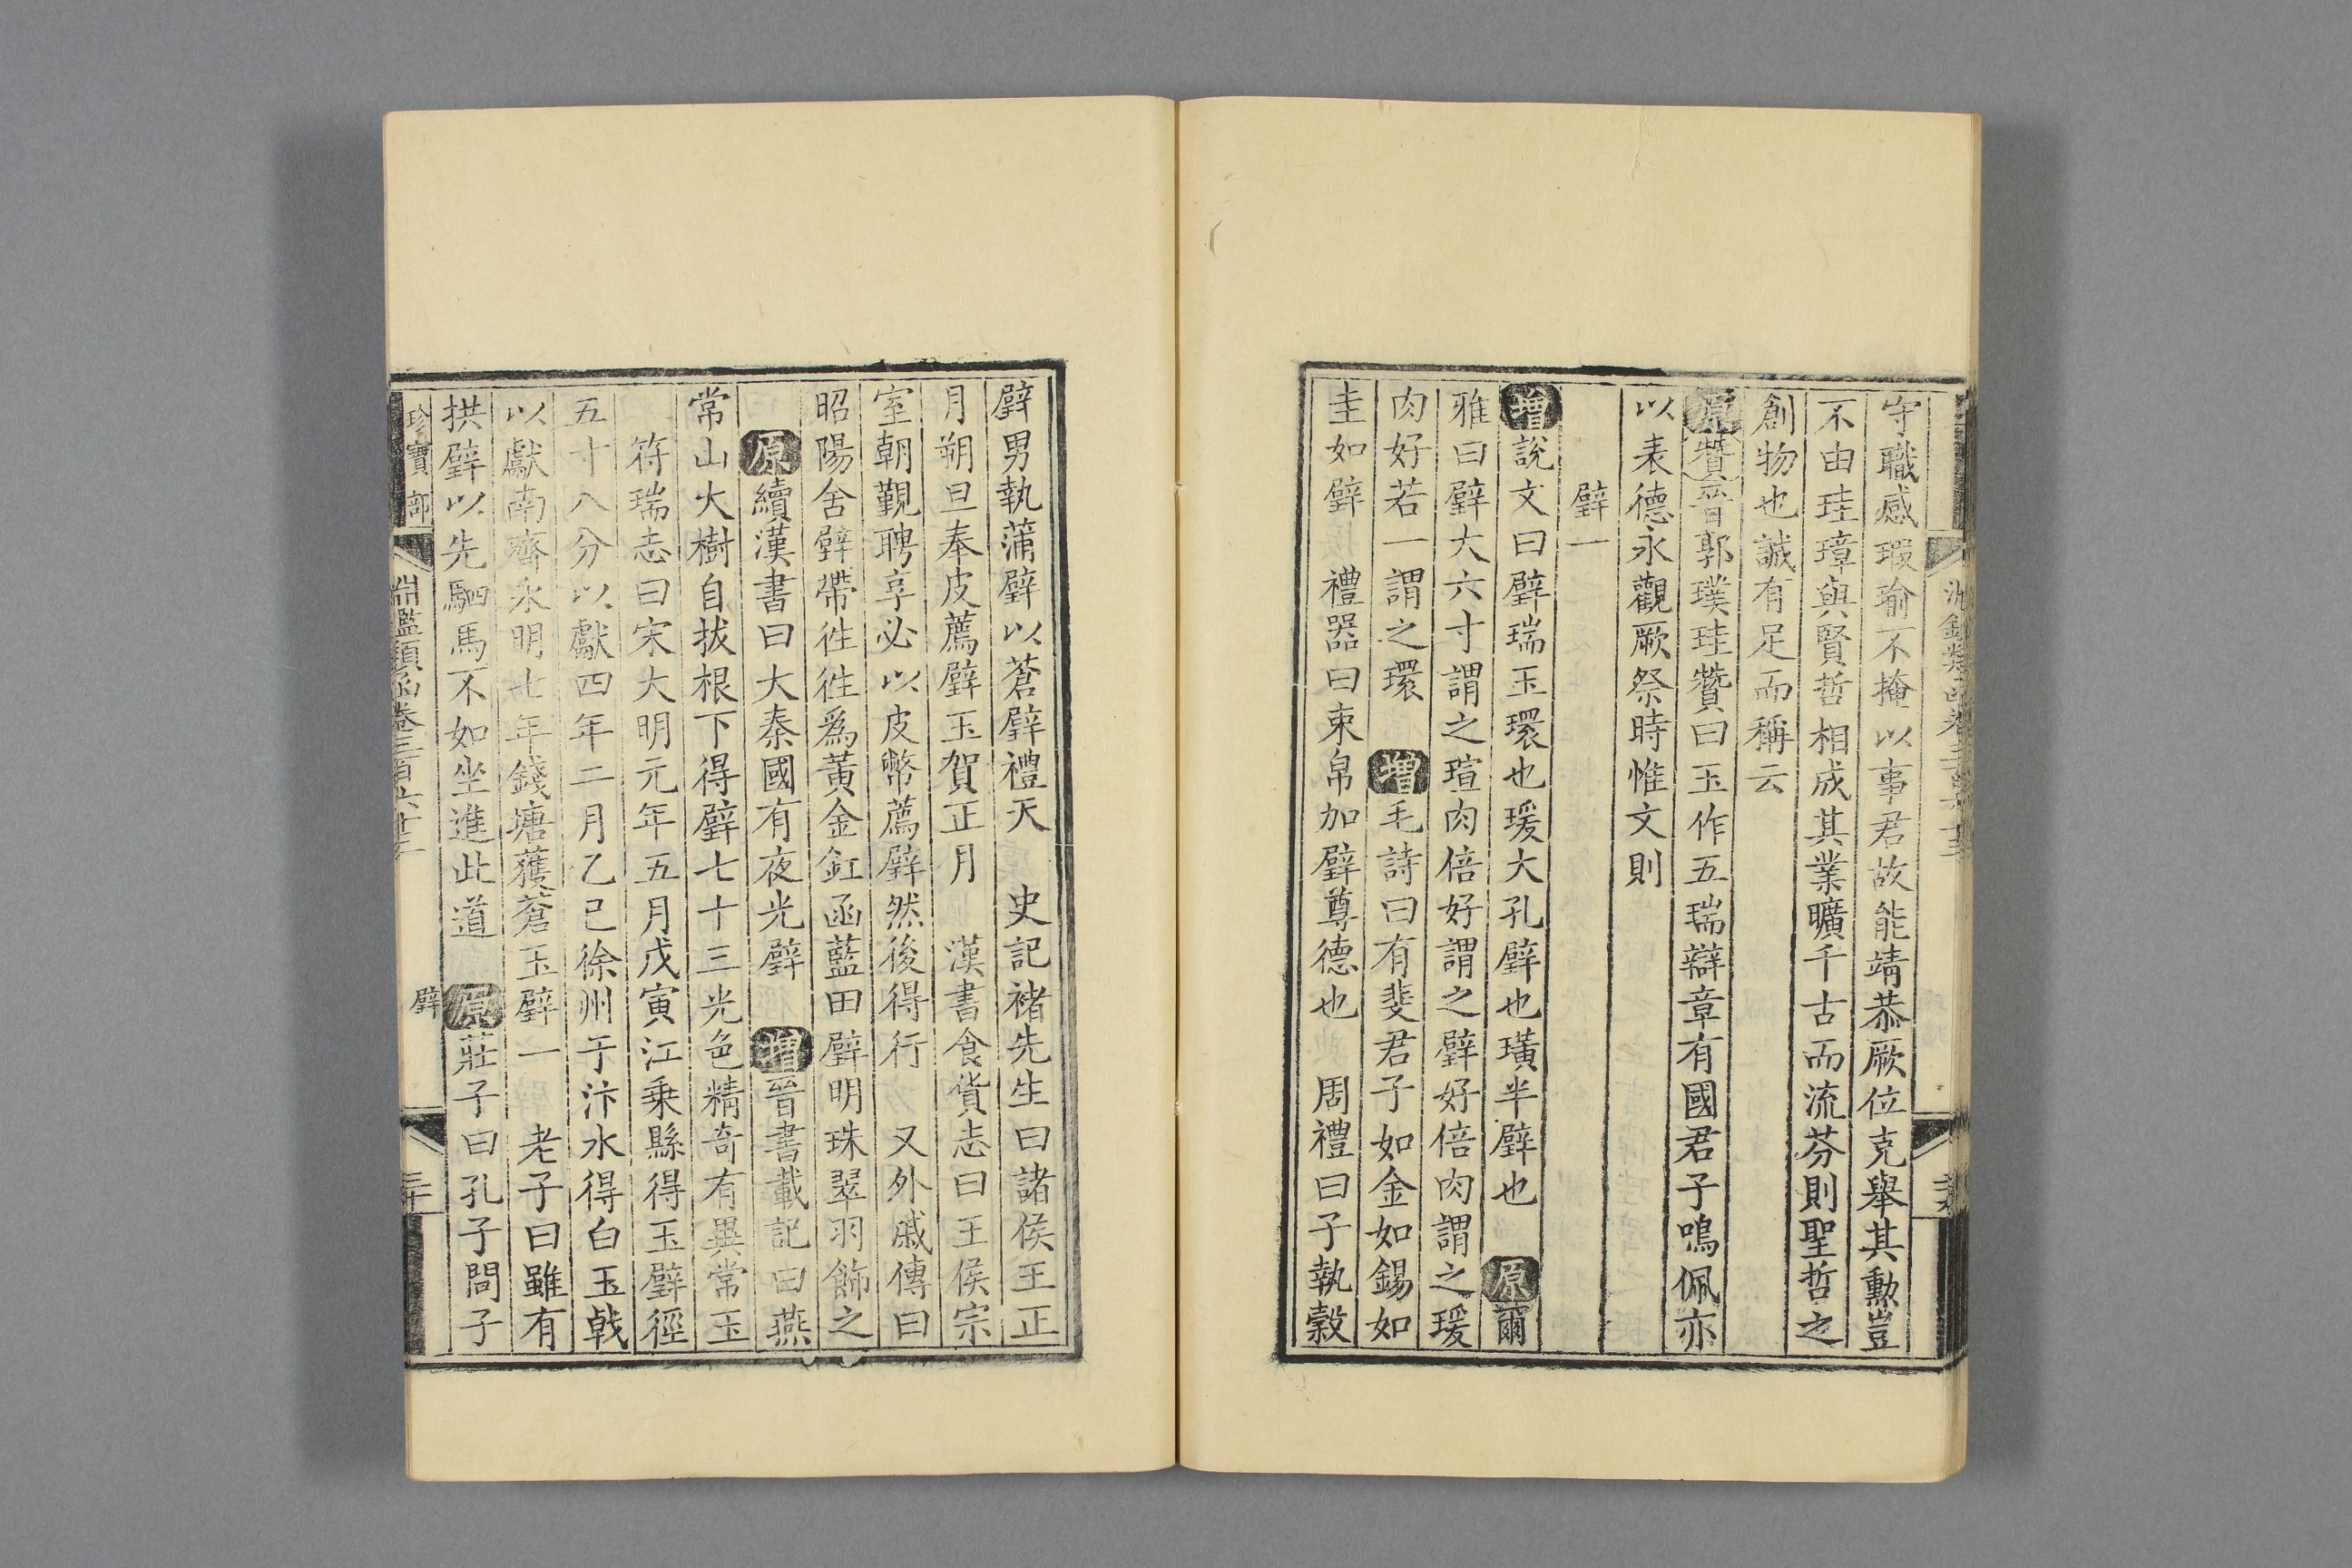 守職感瑕瑜不掩以事君故能靖恭厥位克舉其勳豈
不由珪璋與賢哲相成其業曠千古而流芬則聖哲之
創物也誠有足而稱云
原贊晉郭璞珪贊曰玉作五瑞辯章有國君子鳴佩亦
以表德永觀厥祭時惟文則
璧一
增說文曰璧瑞玉環也瑗大孔璧也璜半璧也 原爾
雅曰璧大六寸謂之瑄肉倍好謂之璧好倍肉謂之瑗
肉好若一謂之環 增毛詩曰有斐君子如金如錫如
圭如璧 禮器曰束帛加璧尊德也 周禮曰子執穀
璧男執蒲璧以蒼璧禮天 史記褚先生曰諸侯王正
月朔旦奉皮薦璧玉賀正月 漢書食貨志曰王侯宗
室朝覲聘享必以皮幣薦璧然後得行 又外戚傳曰
昭陽舍璧帶往往爲黃金釭函藍田璧明珠翠羽飾之
原續漢書曰大秦國有夜光璧 增晉書載記曰燕
常山大樹自拔根下得璧七十三光色精奇有異常玉
符瑞志曰宋大明元年五月戊寅江乘縣得玉璧徑
五寸八分以獻四年二月乙巳徐州于汴水得白玉戟
以獻南齊永明七年錢塘獲蒼玉璧一 老子曰雖有
拱璧以先駟馬不如坐進此道 原莊子曰孔子問子
珍寶部 淵鑑類函卷三百六十三 璧 三十